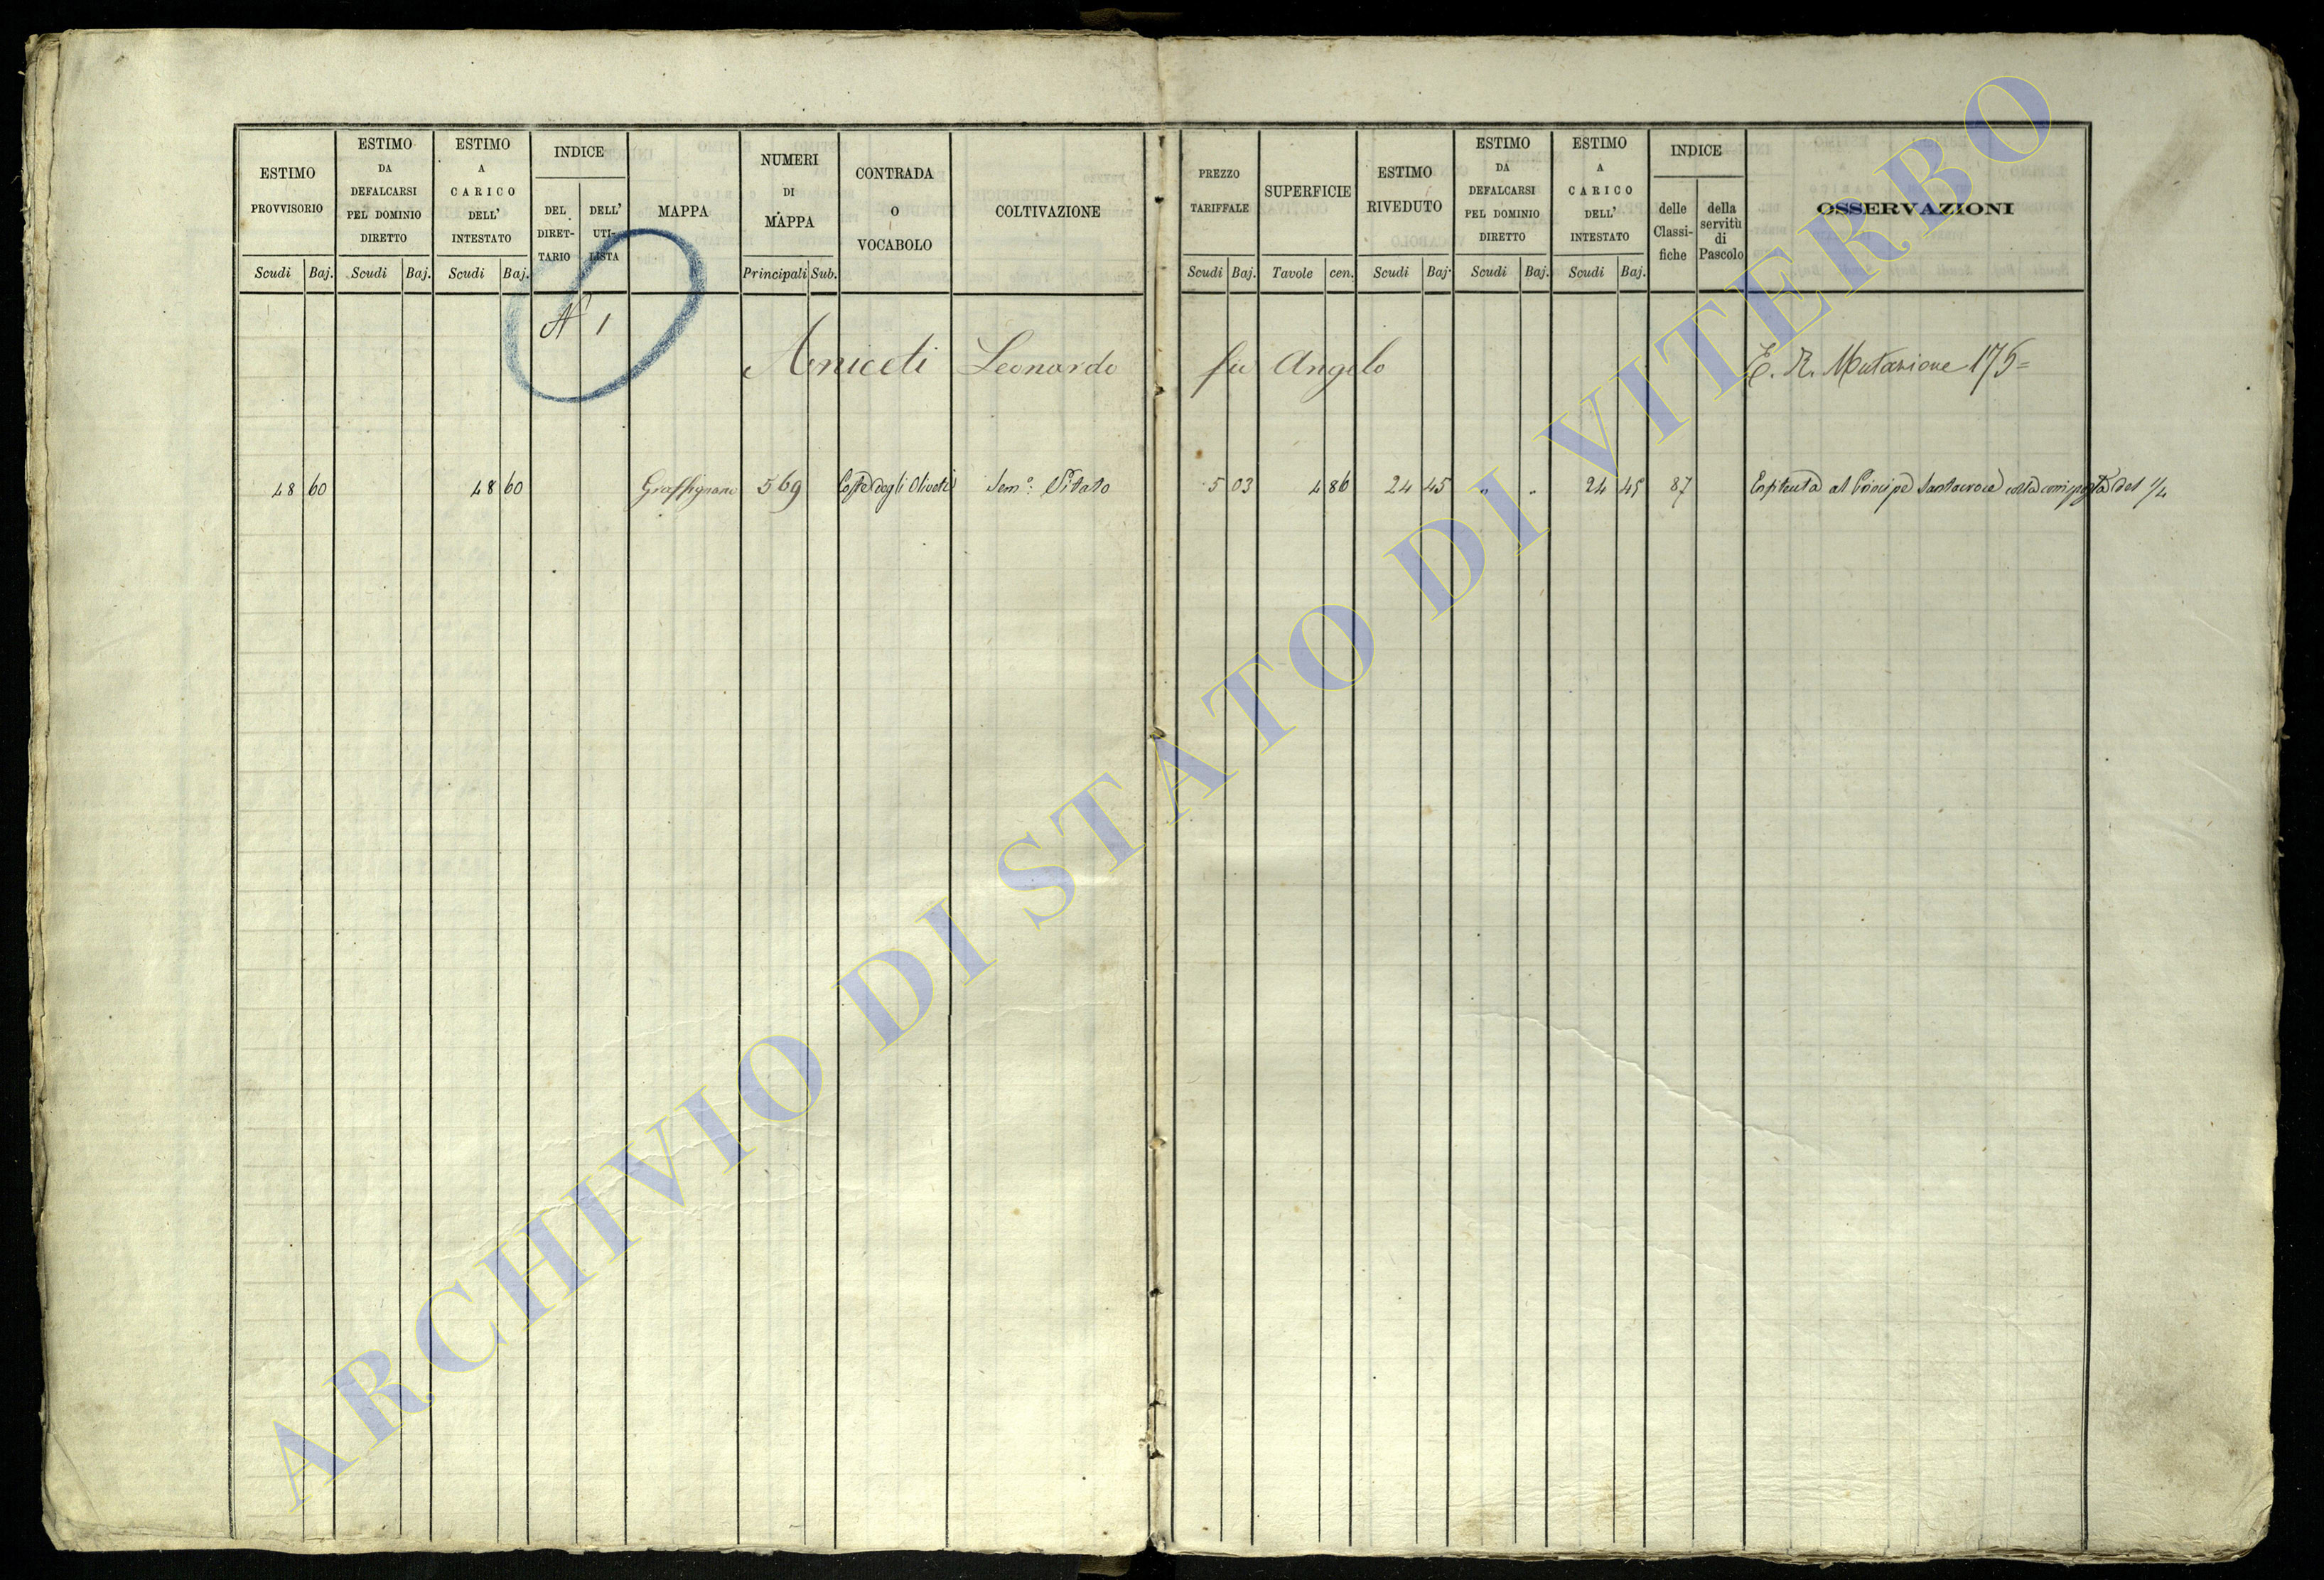 ESTIMO PROVVISORIO
Scudi Baj.
ESTIMO DA DEFALCARSI PEL DOMINIO DIRETTO
Scudi Baj.
ESTIMO A CARICO DELL' INTESTATO
Scudi Baj.
INDICE
DEL DIRET-TARIO
DELL' UTI-LISTA
MAPPA
NUMERI DI MAPPA
Principali Sub.
CONTRADA O VOCABOLO
COLTIVAZIONE
PREZZO TARIFFALE
Scudi Baj.
SUPERFICIE
Tavole cen.
ESTIMO RIVEDUTO
Scudi Baj.
ESTIMO DA DEFALCARSI PEL DOMINIO DIRETTO
Scudi Baj.
ESTIMO A CARICO DELL' INTESTATO
Scudi Baj.
INDICE
delle Classi-fiche
della servitù di Pascolo
OSSERVAZIONI
N 1
Aniceti Leonardo fu Angelo E. R. Mutazione 175=
48 60 48 60 Graffignano 569 Coste degli Oliveti Sem.º Vitato 5 03 4 86 24 45 " " 24 45 87 Enfiteuta al Principe Santacroce colla corrisposta del 1/4
ARCHIVIO DI STATO DI VITERBO